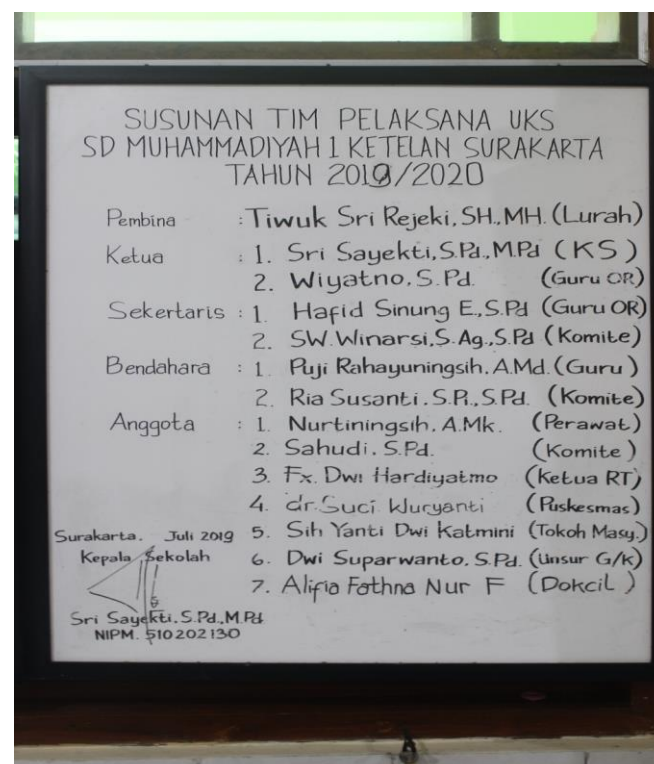 SUSUNAN TIM PELAKSANA UKS
SD MUHAMMADIYAH 1 KETELAN SURAKARTA
TAHUN 2019/2020
Pembina : Tiwuk Sri Rejeki, SH., MH. (Lurah)
Ketua : 1. Sri Sayekti, S.Pd., M.Pd (KS)
2. Wiyatno, S.Pd. (Guru OR)
Sekertaris : 1. Hafid Sinung E., S.Pd (Guru OR)
2. SW. Winarsi, S.Ag., S.Pd (Komite)
Bendahara : 1. Puji Rahayuningsih, A.Md. (Guru)
2. Ria Susanti, S.P., S.Pd. (Komite)
Anggota : 1. Nurtiningsih, A.Mk. (Perawat)
2. Sahudi, S.Pd. (Komite)
3. Fx. Dwi Hardiyatmo (Ketua RT)
4. dr. Suci Wuryanti (Puskesmas)
5. Sih Yanti Dwi Katmini (Tokoh Masy.)
6. Dwi Suparwanto, S.Pd. (Unsur G/K)
7. Alifia Fathna Nur F (Dokcil)
Surakarta, Juli 2019
Kepala Sekolah
Sri Sayekti, S.Pd., M.Pd
NIPM. 510202130